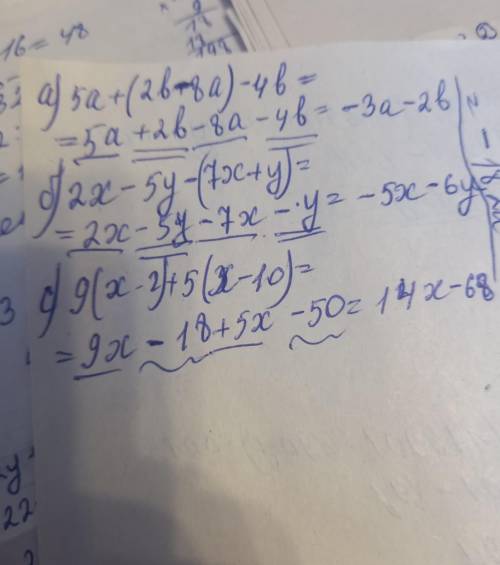 16 = 48
а) 5a+(2b-8a)-4b=
=5a+2b-8a-4b=-3a-2b
б) 2x-5y-(7x+y)=
=2x-5y-7x-y=-5x-6y
с) 9(x-2)+5(x-10)=
=9x-18+5x-50=14x-68
3
22